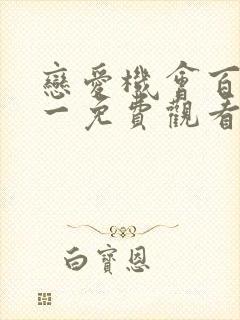 戀愛機會百
一免費觀看
白寶恩